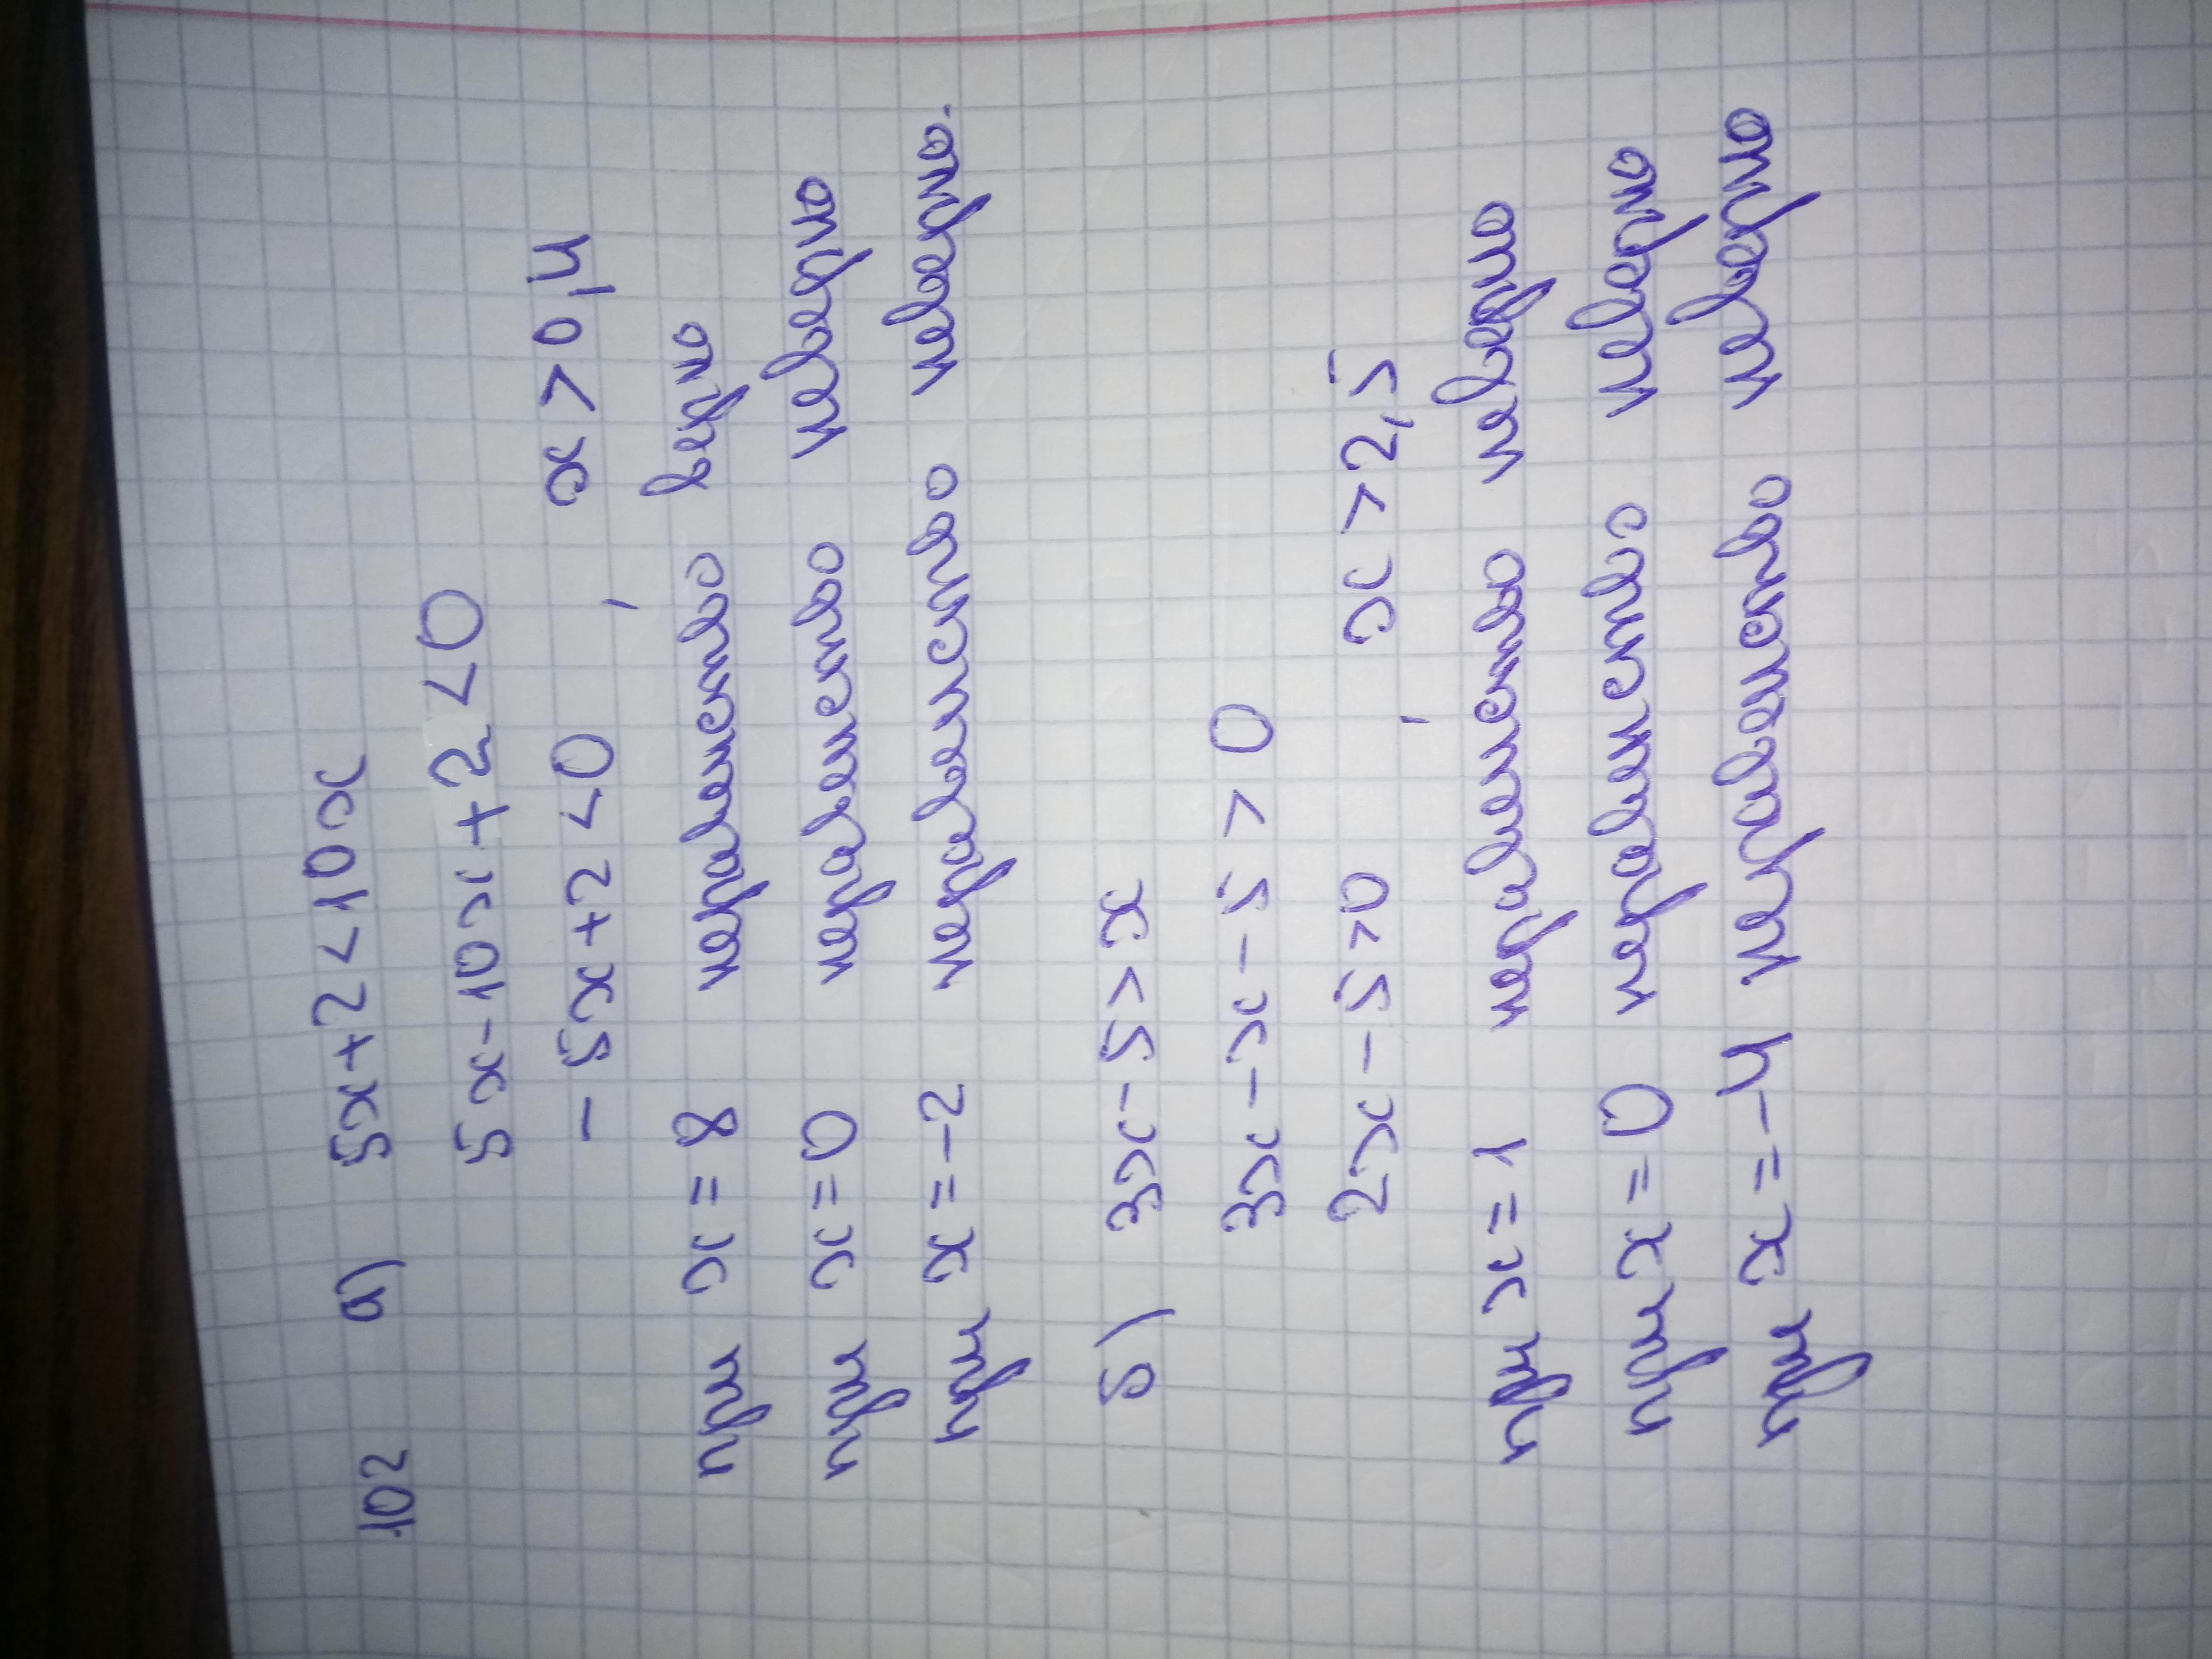 102 а) 5x+2<10x
5x-10x+2<0
-5x+2<0 x>0,4
при x=8 неравенство верно
при x=0 неравенство неверно
при x=-2 неравенство неверно.
б) 3x-5>x
3x-x-5>0
2x-5>0 x>2,5
при x=1 неравенство неверно
при x=0 неравенство неверно
при x=-4 неравенство неверно